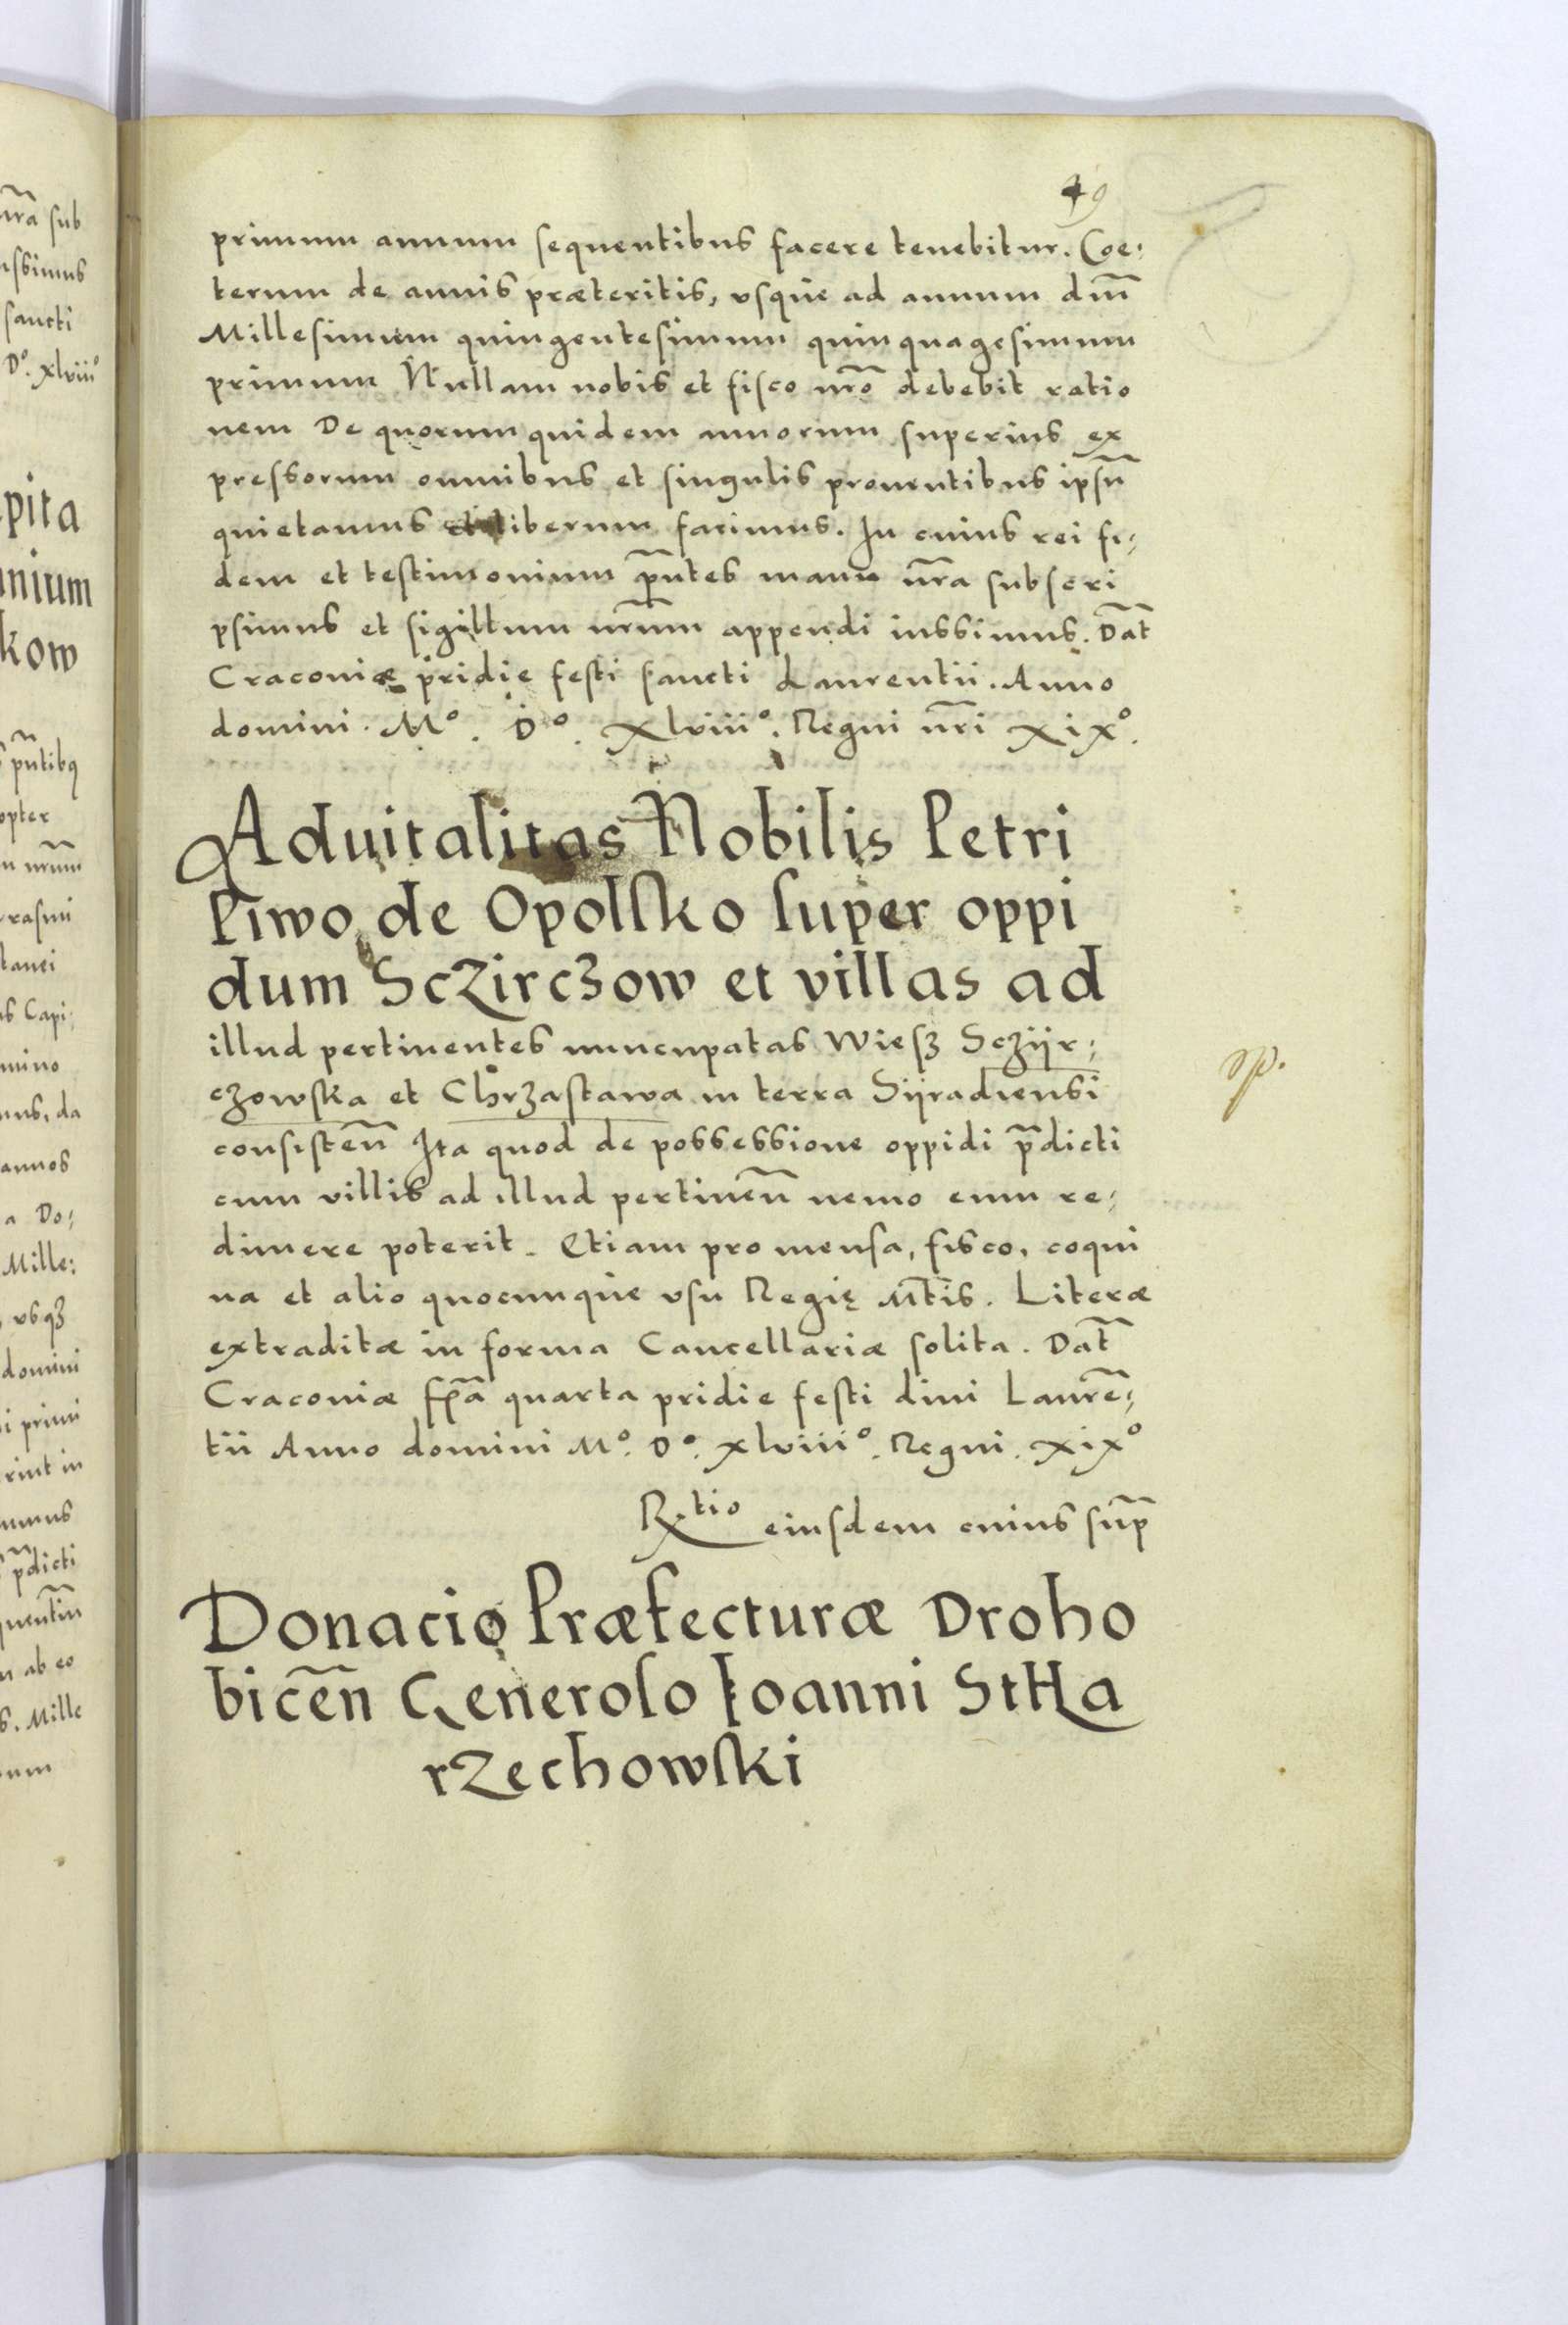 49
primum annum sequentibus facere tenebitur. Coe:
terum de annis præteritis, vsque ad annum dn̄i
Millesimum quingentesimum quinquagesimum
primum Nullam nobis et fisco nr̄o debebit ratio
nem De quorum quidem annorum superius ex
pressorum omnibus et singulis prouentibus ipsū
quietamus et liberum facimus. In cuius rei fi:
dem et testimonium p̄ntes manu nr̄a subscri
psimus et sigillum nr̄um appendi iussimus. Dat̄
Cracoviæ pridie festi sancti Laurentii. Anno
domini. Mº. Dº. xlviiiº. Regni nr̄i xixº.
Aduitalitas Nobilis Petri
Piwo de Opolsko super oppi
dum Sczirczow et villas ad
illud pertinentes nuncupatas Wiesz Sczijr:
czowska et Chrzastawa in terra Sijradiensi
consisten̄ Ita quod de possessione oppidi p̄dicti
cum villis ad illud pertinen̄ nemo eum re:
dimere poterit. Etiam pro mensa, fisco, coqui
na et alio quocunque vsu Regię Mt̄is. Literæ
extraditæ in forma Cancellariæ solita. Dat̄
Cracoviæ fr̄ia quarta pridie festi diui Laurē:
tii Anno domini Mº. Dº. xlviiiº. Regni. xixº
R.tio eiusdem cuius sup̄
Donacio Præfecturæ Droho
bicēn Generoso Ioanni Stha
rzechowski